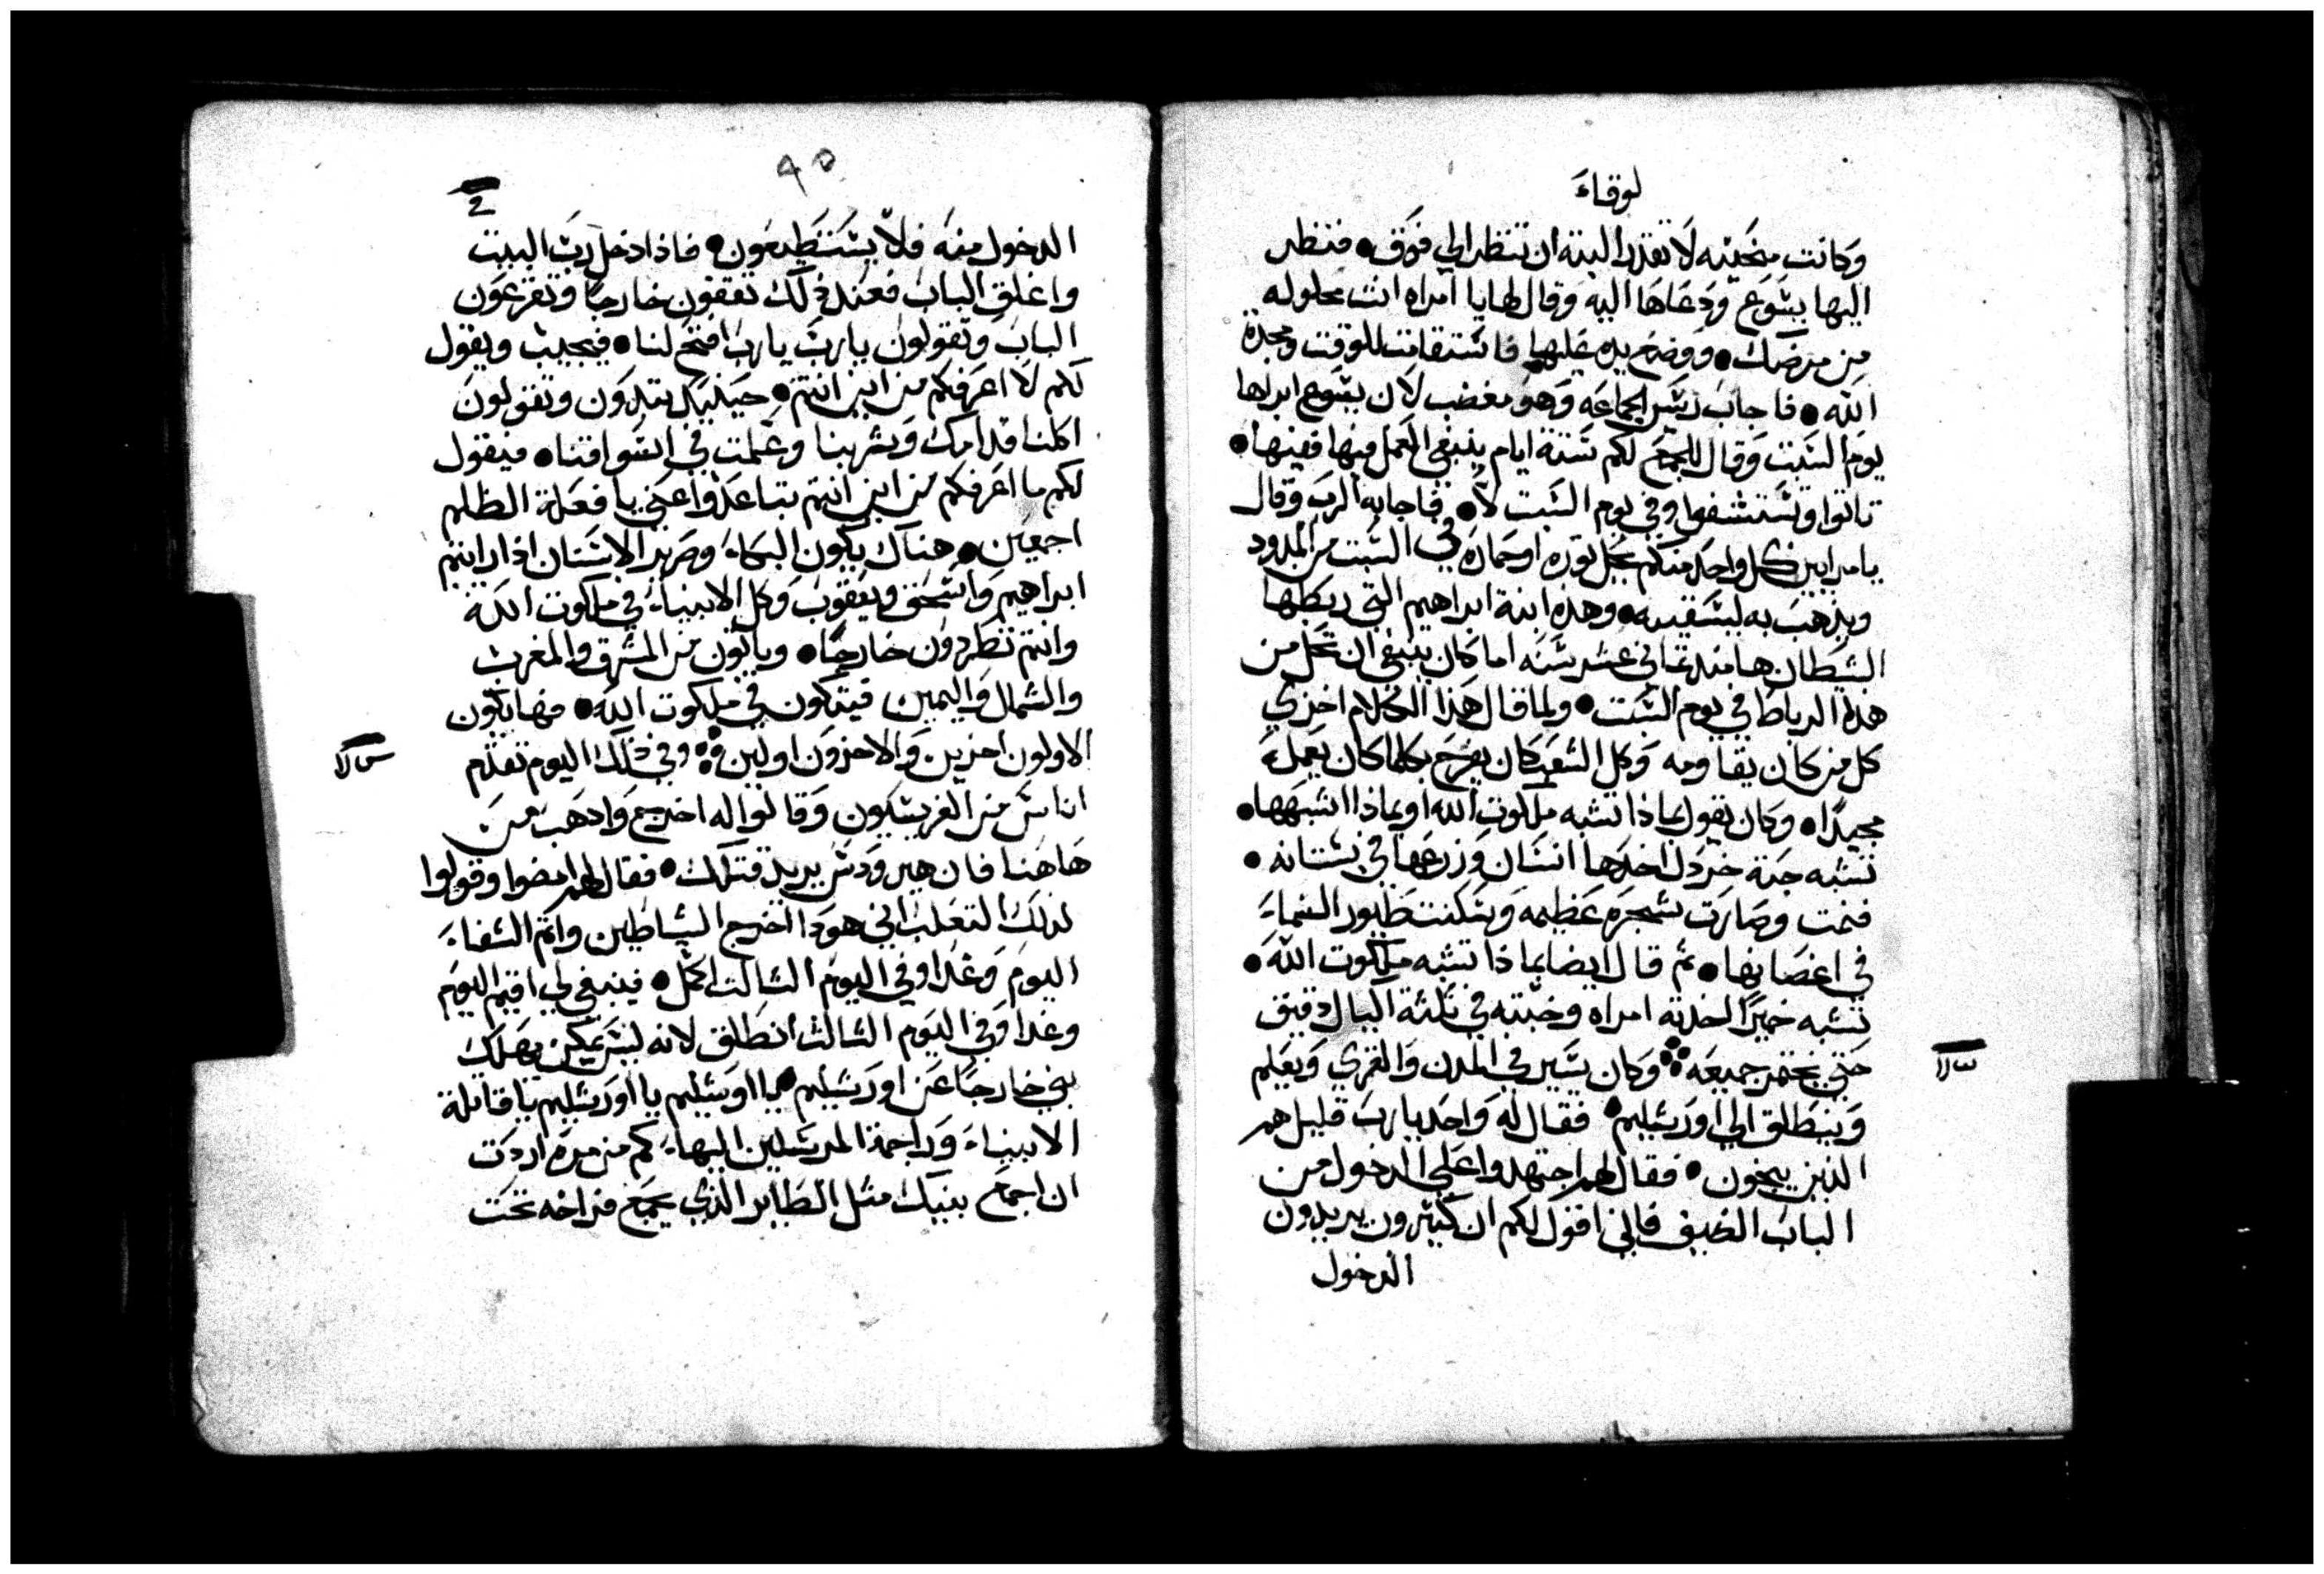 لوقاء
وكانت منحنيه لا تقدر البتة ان تنظر الي فوق • فنظر
اليها يشوع ودعاها اليه وقال لها يا امراه انت محلوله
من مرضك • ووضع يده عليها فاستقامت للوقت ومجدة
الله • فاجاب ريس الجماعه وهو مغضب لان يشوع ابراها
يوم السبت وقال للجمع لكم ستة ايام ينبغي العمل فيها ففيها •
تاتوا وتستشفوا وفي يوم السبت لا • فاجابه الرب وقال
يا مرايين كل واحد منكم يحل ثوره او حماره في السبت من المدود
ويذهب به ليسقيه • وهذه ابنة ابراهيم التي ربطها
الشيطان ها منذ ثماني عشر سنه اما كان ينبغي ان تحل من
هذا الرباط في يوم السبت • ولما قال هذا الكلام اخزي
كل من كان يقاومه وكل الشعب كان يفرح بكلما كان يعمله
مجيدًا • وكان يقول بماذا تشبه ملكوت الله او بماذا اشبهها •
تشبه حبة خردل اخدها انسان وزرعها في بستانه •
فنمت وصارت شجره عظيمه وسكنت طيور السماء
في اغصانها • ثم قال ايضا بماذا تشبه ملكوت الله •
تشبه خميرًا اخدته امراه وخبته في ثلثة اكيال دقيق
حتي يختمر جميعه ⁘ وكان يسير في المدن والقري ويعلم
وينطلق الي اورشليم • فقال له واحد يارب قليل هم
الذين ينجون • فقال لهم اجتهدوا علي الدخول من
الباب الضيق فاني اقول لكم ان كثيرون يريدون
الدخول
٩٥
الدخول منه فلا يستطيعون • فاذا دخل رب البيت
واغلق الباب فعند ذلك تقفون خارجًا وتقرعون
الباب وتقولون يارب يارب افتح لنا • فيجيب ويقول
لكم لا اعرفكم من اين انتم • حينيد تبتدون وتقولون
اكلنا قدامك وشربنا وعلمت في اسواقنا • فيقول
لكم ما اعرفكم من اين انتم تباعدوا عني يا فعلة الظلم
اجمعين • هناك يكون البكاء وصرير الاسنان اذا رايتم
ابراهيم واسحق ويعقوب وكل الانبياء في ملكوت الله
وانتم تطردون خارجًا • وياتون من المشرق والمغرب
والشمال واليمين فيتكون في ملكوت الله • فها يكون
الاولون اخرين والاخرون اولين ⁘ وفي ذلك اليوم تقدم
اناس من الفريسيون وقالوا له اخرج واذهب من
هاهنا فان هيرودس يريد قتلك • فقال لهم امضوا وقولوا
لذلك الثعلب اني هوذا اخرج الشياطين واتم الشفاء
اليوم وغدا وفي اليوم الثالث اكمل • فينبغي لي اقيم اليوم
وغدا وفي اليوم الثالث انطلق لانه ليس يمكن يهلك
نبي خارجًا عن اورشليم • يا اورشليم يا اورشليم يا قاتلة
الانبياء وراجمة المرسلين اليها كم من مرة اردت
ان اجمع بنيك مثل الطاير الذي يجمع فراخه تحت